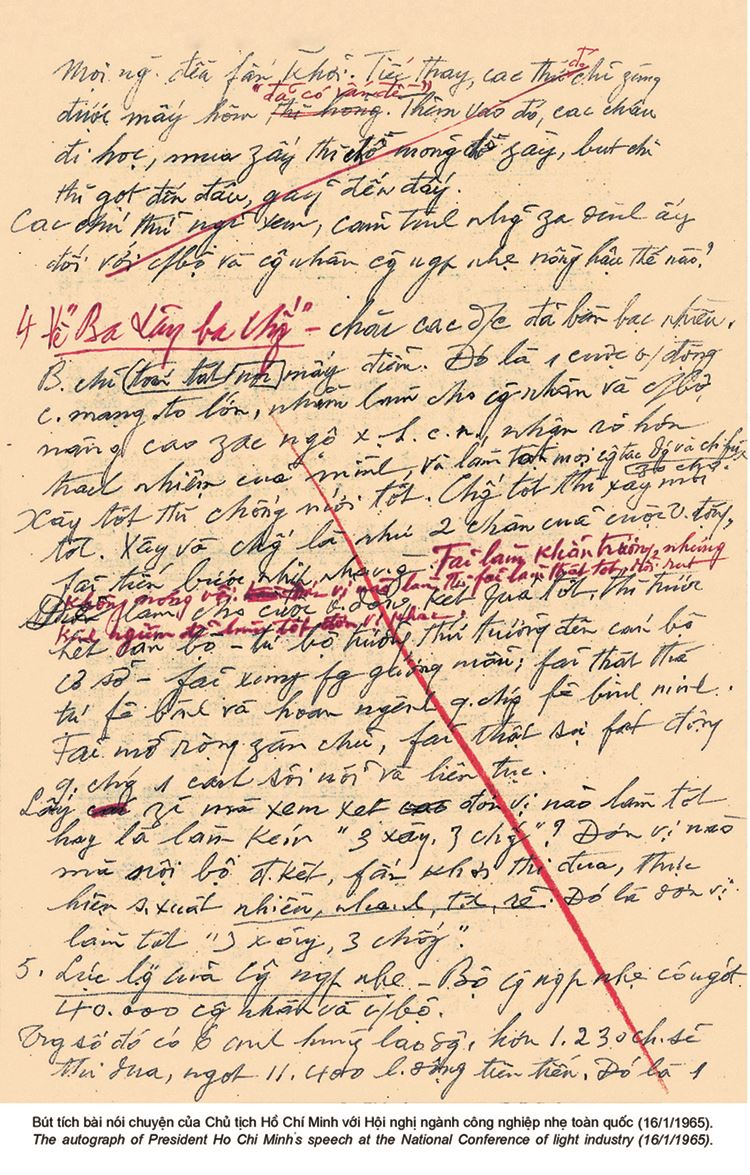 Mọi ng. đều fấn khởi. Tiếc thay, các thứ đó chỉ zùng
được mấy hôm "đã có vấn đề" thì hỏng. Thêm vào đó, các cháu
đi học, mua zấy thì chỗ mỏng chỗ zầy, bút chì
thì gọt đến đâu, gẫy đến đấy.
Các chú thử nghĩ xem, cảm tình nhg za đình ấy
đối với c/bộ và cg nhân cg ngp nhẹ nồng hậu thế nào?
4 Về "Ba xây ba chống" - chắc các đ/c đã bàn bạc nhiều.
B. chỉ (tóm tắt) nói mấy điểm. Đó là 1 cuộc v/động
c. mạng to lớn, nhằm làm cho cg nhân và c/bộ
nâng cao zác ngộ x.h.c.n, nhận rõ hơn
trách nhiệm của mình, và làm tốt mọi cg tác
Xây tốt thì chống mới tốt. Chống tốt thì xây mới
tốt. Xây và chống là như 2 chân của cuộc v. động,
fải tiến bước nhịp nhàng. Fải làm khẩn trương, nhưng
không nóng vội. đơn vị nào làm thì fải làm thật tốt, rồi rút
kinh nghiệm để làm tốt đơn vị khác.
làm cho cuộc v. động kết quả tốt, thì trước
hết cán bộ - từ bộ trưởng, thứ trưởng đến cán bộ
cơ sở - fải xung fg gương mẫu; fải thật thà
tự fê bình và hoan nghênh q. chúg fê bình mình.
Fải mở rộng zân chủ, fải thật sự fát động
q. chúg 1 cách sôi nổi và liên tục.
Lấy zì mà xem xét đơn vị nào làm tốt
hay là làm kém "3 xây, 3 chống"? Đơn vị nào
mà nội bộ đ. kết, fấn khởi thi đua, thực
hiện s. xuất nhiều, nhanh, tốt, rẻ. Đó là đơn vị
làm tốt "3 xây, 3 chống".
5. Lực lg của cg ngp nhẹ - Bộ cg ngp nhẹ có ngót
40.000 cg nhân và c/bộ.
Trg số đó có 6 anh hùng lao độg, hơn 1.230 ch. sĩ
thi đua, ngót 11.400 l. động tiên tiến. Đó là 1
Bút tích bài nói chuyện của Chủ tịch Hồ Chí Minh với Hội nghị ngành công nghiệp nhẹ toàn quốc (16/1/1965).
The autograph of President Ho Chi Minh's speech at the National Conference of light industry (16/1/1965).